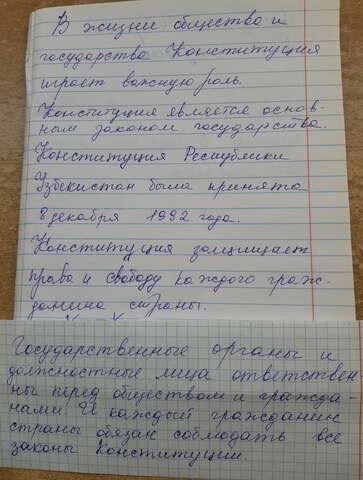 В жизни общества и
государства Конституция
играет важную роль.
Конституция является основ-
ным законом государства.
Конституция Республики
Узбекистан была принята
8 декабря 1992 года.
Конституция защищает
права и свободу каждого граж-
данина страны.
Государственные органы и
должностные лица ответствен-
ны перед обществом и гражда-
нами. И каждый гражданин
страны обязан соблюдать все
законы Конституции.